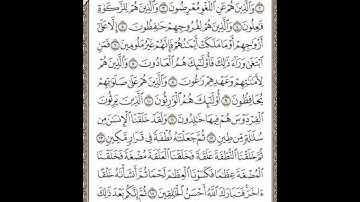 وَٱلَّذِينَ هُمْ عَنِ ٱللَّغْوِ مُعْرِضُونَ ٣ وَٱلَّذِينَ هُمْ لِلزَّكَوٰةِ
فَٰعِلُونَ ٤ وَٱلَّذِينَ هُمْ لِفُرُوجِهِمْ حَٰفِظُونَ ٥ إِلَّا عَلَىٰٓ
أَزْوَٰجِهِمْ أَوْ مَا مَلَكَتْ أَيْمَٰنُهُمْ فَإِنَّهُمْ غَيْرُ مَلُومِينَ ٦ فَمَنِ
ٱبْتَغَىٰ وَرَآءَ ذَٰلِكَ فَأُو۟لَٰٓئِكَ هُمُ ٱلْعَادُونَ ٧ وَٱلَّذِينَ هُمْ
لِأَمَٰنَٰتِهِمْ وَعَهْدِهِمْ رَٰعُونَ ٨ وَٱلَّذِينَ هُمْ عَلَىٰ صَلَوَٰتِهِمْ
يُحَافِظُونَ ٩ أُو۟لَٰٓئِكَ هُمُ ٱلْوَٰرِثُونَ ١٠ ٱلَّذِينَ يَرِثُونَ
ٱلْفِرْدَوْسَ هُمْ فِيهَا خَٰلِدُونَ ١١ وَلَقَدْ خَلَقْنَا ٱلْإِنسَٰنَ مِن
سُلَٰلَةٍ مِّن طِينٍ ١٢ ثُمَّ جَعَلْنَٰهُ نُطْفَةً فِى قَرَارٍ مَّكِينٍ ١٣
ثُمَّ خَلَقْنَا ٱلنُّطْفَةَ عَلَقَةً فَخَلَقْنَا ٱلْعَلَقَةَ مُضْغَةً فَخَلَقْنَا
ٱلْمُضْغَةَ عِظَٰمًا فَكَسَوْنَا ٱلْعِظَٰمَ لَحْمًا ثُمَّ أَنشَأْنَٰهُ خَلْقًا
ءَاخَرَ فَتَبَارَكَ ٱللَّهُ أَحْسَنُ ٱلْخَٰلِقِينَ ١٤ ثُمَّ إِنَّكُم بَعْدَ ذَٰلِكَ